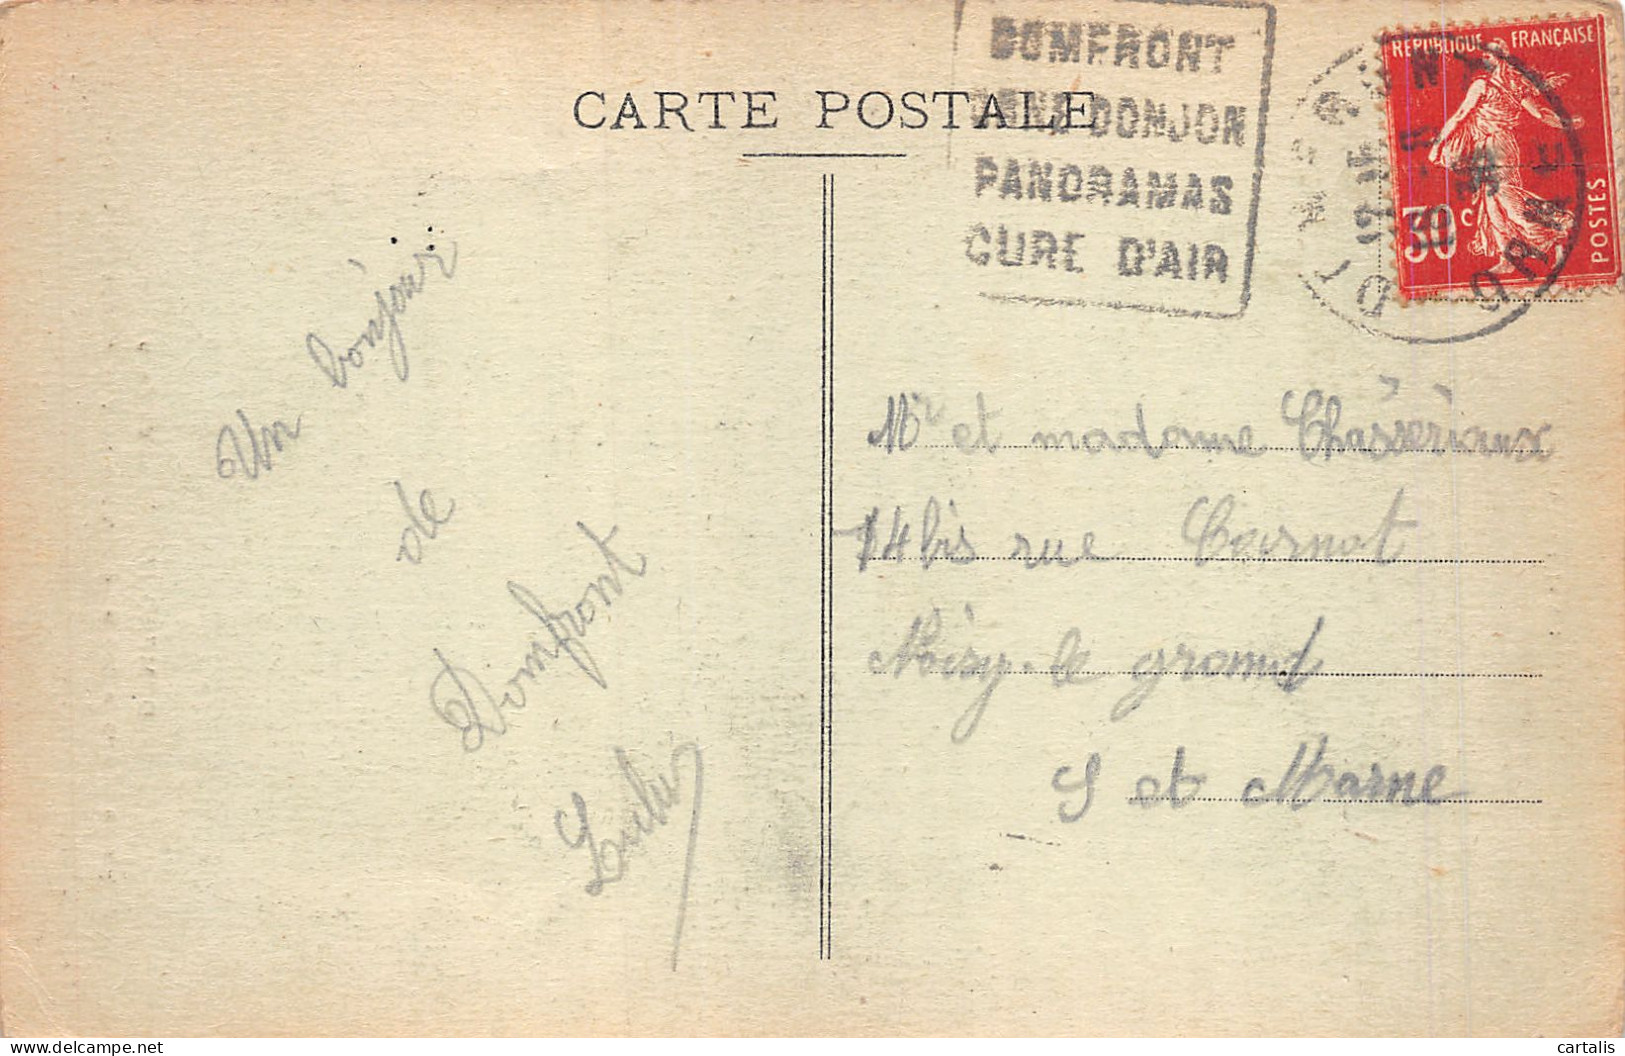 CARTE POSTALE
DOMFRONT
DONJON
PANORAMAS
CURE D'AIR
REPUBLIQUE FRANÇAISE
30c
POSTES
ORNE
Un bonjour
de
Domfront
Mr et madame Chassériaux
14 bis rue Carnot
Noisy-le grand
S et Marne
delcampe.net
cartalis